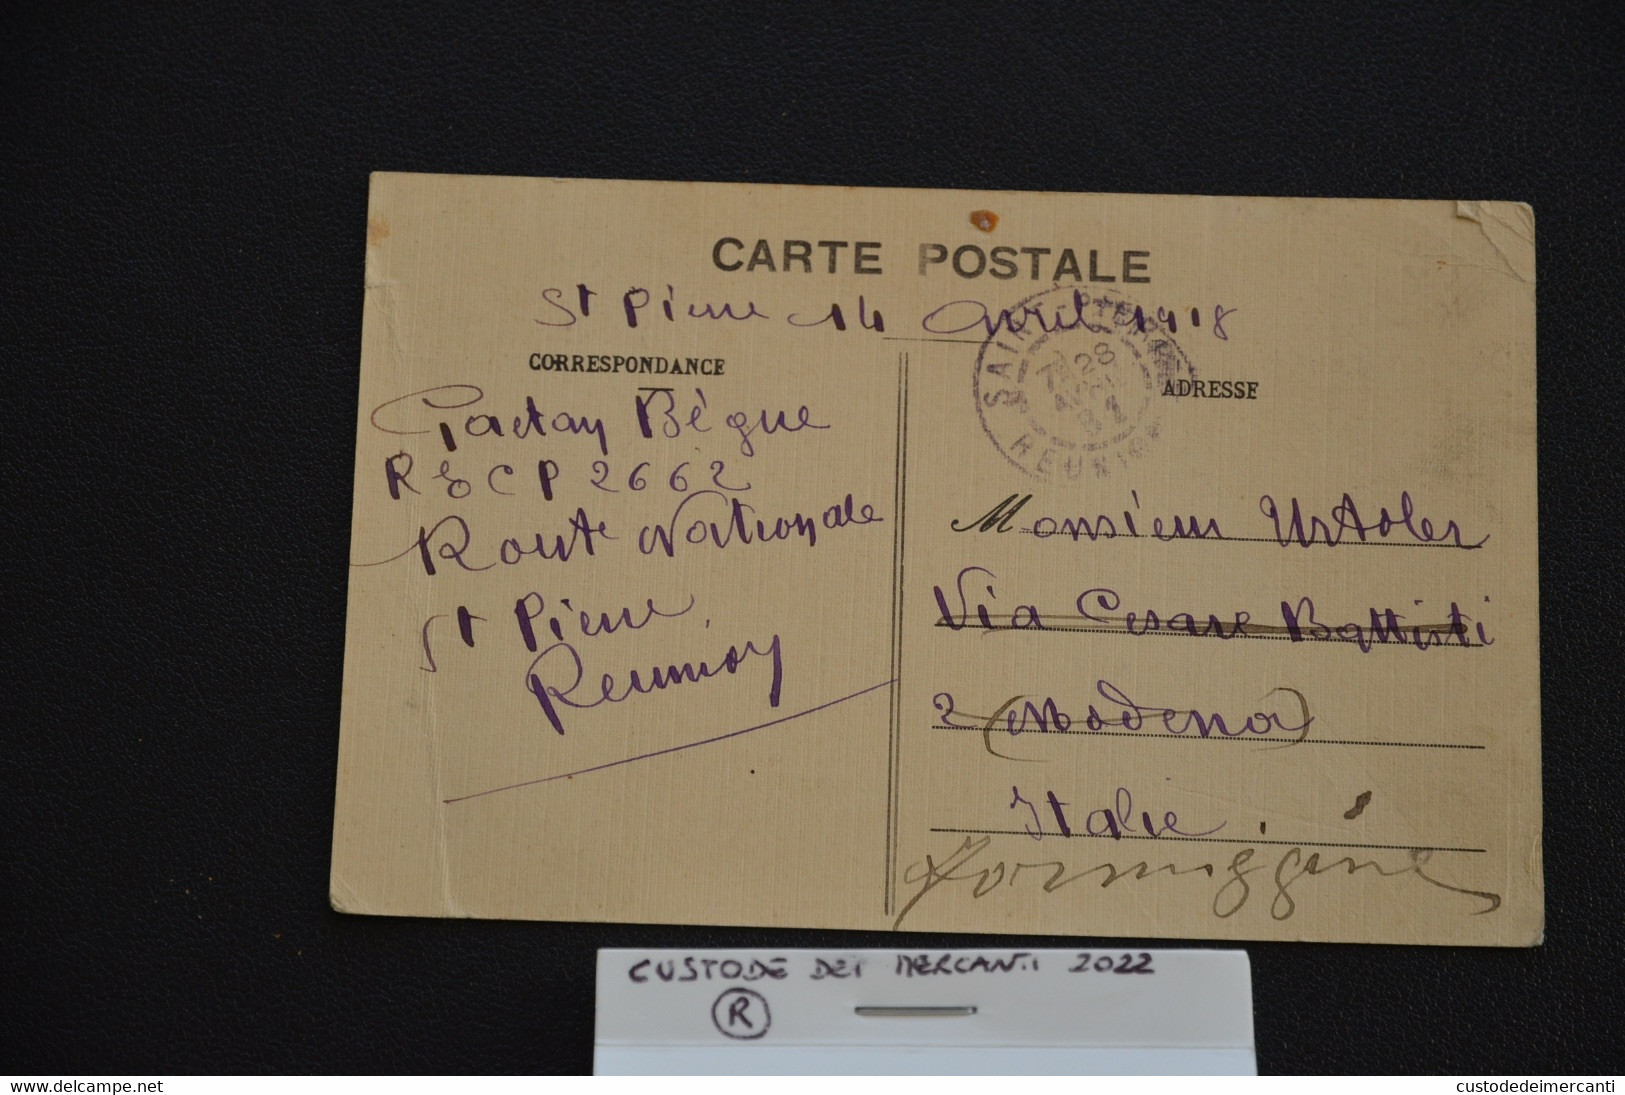 CARTE POSTALE
St Pierre 14 Avril 1918
CORRESPONDANCE
ADRESSE
SAINT-PIERRE
28
REUNION
Gaetan Bègue
R E C P 2662
Route Nationale
St Pierre
Reunion
Monsieur
Via Cesare Battisti
2 (Modena)
Italie.
Formiggine
CUSTODE DEI MERCANTI 2022
R
www.delcampe.net
custodedeimercanti